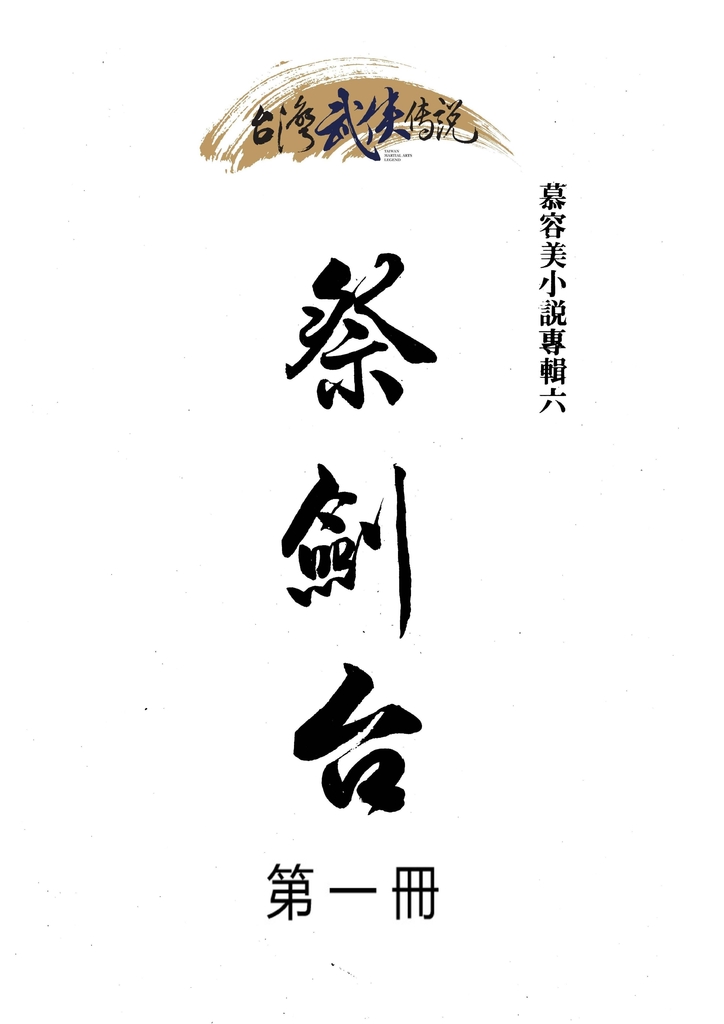 台灣武侠传説
TAIWAN
MARTIAL ARTS
LEGEND
慕容美小説專輯六
祭劍台
第一冊